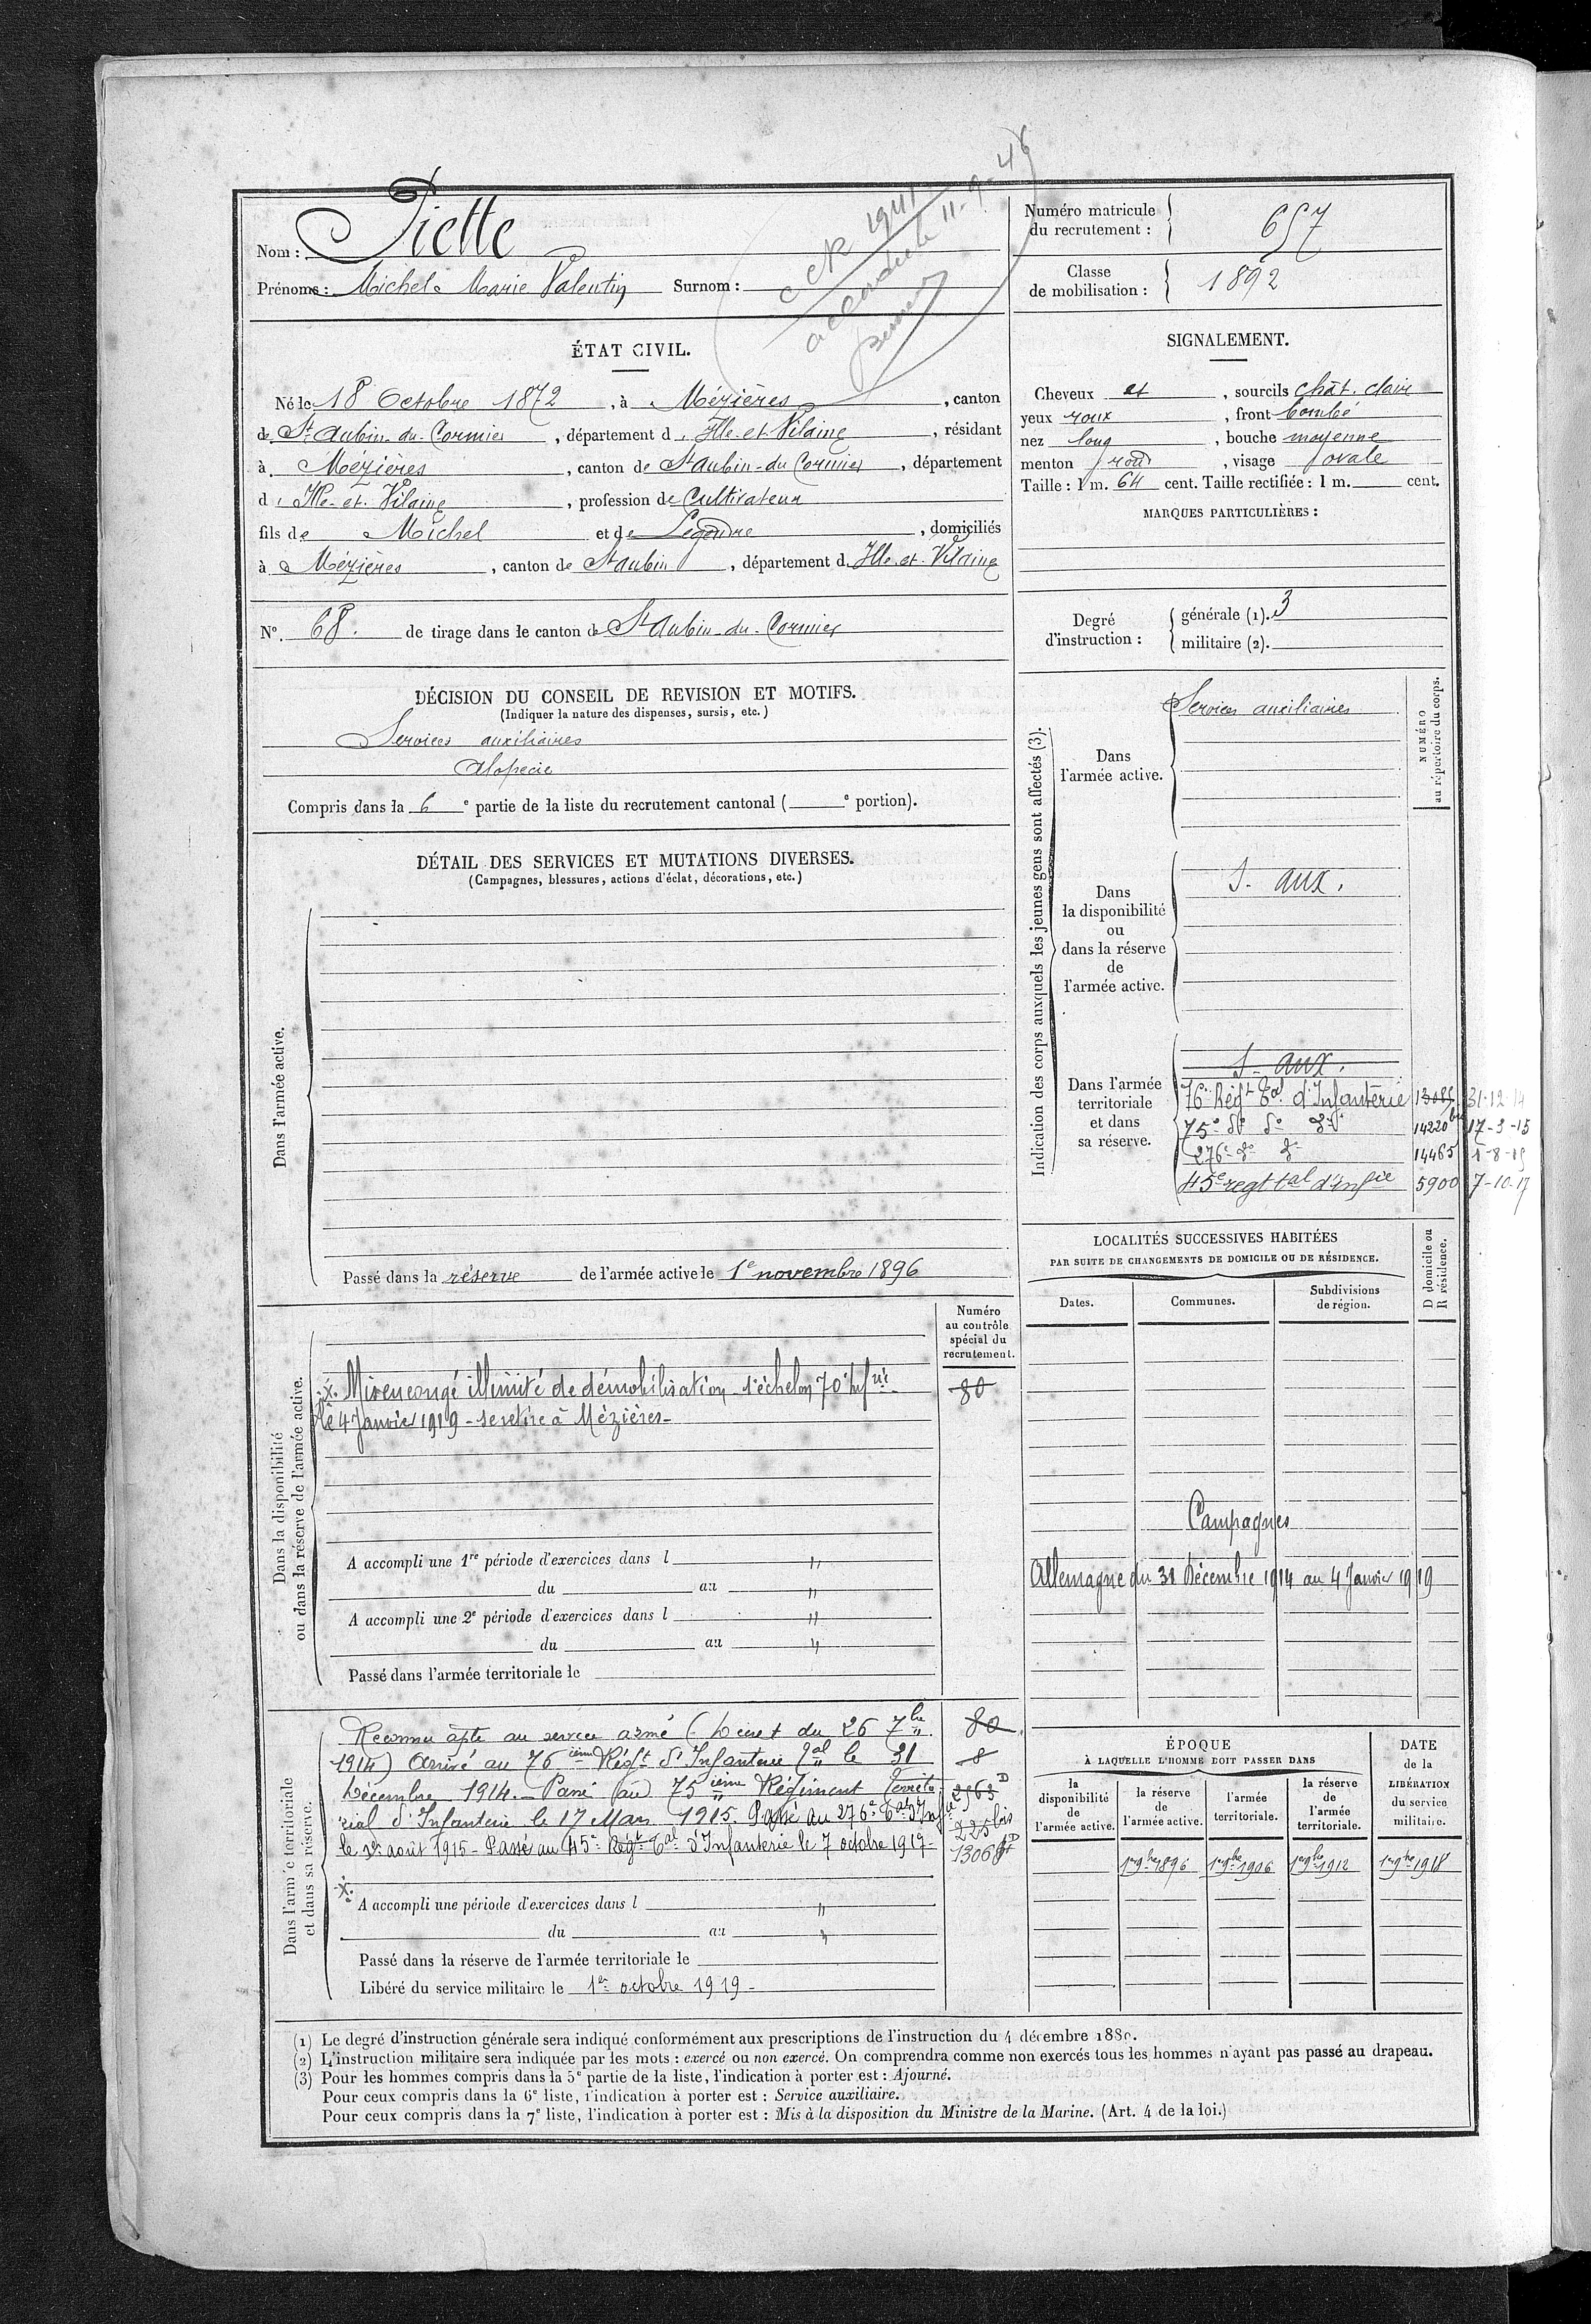 Nom : Piette
Prénoms : Michel Marie Valentin Surnom :
CCR 1941
accordée le 11-9-46
Numéro matricule du recrutement : 657
Classe de mobilisation : 1892
ÉTAT CIVIL.
Né le 18 Octobre 1872, à Mézières, canton
de St Aubin-du-Cormier, département d'Ille-et-Vilaine, résidant
à Mézières, canton de St Aubin-du-Cormier, département
d'Ille-et-Vilaine, profession de Cultivateur
fils de Michel et de Legendre, domiciliés
à Mézières, canton de St Aubin, département d'Ille-et-Vilaine
No. 68. de tirage dans le canton de St Aubin-du-Cormier
SIGNALEMENT.
Cheveux et, sourcils chât. clair
yeux roux, front bombé
nez long, bouche moyenne
menton rond, visage ovale
Taille : 1 m. 64 cent. Taille rectifiée : 1 m. cent.
MARQUES PARTICULIÈRES :
Degré d'instruction :
générale (1). 3
militaire (2).
DÉCISION DU CONSEIL DE REVISION ET MOTIFS.
(Indiquer la nature des dispenses, sursis, etc.)
Services auxiliaires
Alopecie
Compris dans la 6e partie de la liste du recrutement cantonal ( e portion).
DÉTAIL DES SERVICES ET MUTATIONS DIVERSES.
(Campagnes, blessures, actions d'éclat, décorations, etc.)
Dans l'armée active.
Passé dans la réserve de l'armée active le 1e novembre 1896
Indication des corps auxquels les jeunes gens sont affectés (3).
NUMÉRO
au répertoire du corps.
Dans
l'armée active.
Services auxiliaires
Dans
la disponibilité
ou
dans la réserve
de
l'armée active.
S. aux.
Dans l'armée
territoriale
et dans
sa réserve.
S. aux.
76e Régt Tal d'Infanterie 13085 31-12-14
75e do do do 14220 bis 17-3-15
276e do do 14465 1-8-15
45e regt tal d'infie 5900 7-10-17
Dans la disponibilité
ou dans la réserve de l'armée active.
Numéro
au contrôle
spécial du
recrutement.
x. Mis en congé illimité de démobilisation 1e échelon 70e Infrie
le 4 Janvier 1919 - se retire à Mézières -
80
A accompli une 1re période d'exercices dans l "
du au "
A accompli une 2e période d'exercices dans l "
du au "
Passé dans l'armée territoriale le
LOCALITÉS SUCCESSIVES HABITÉES
PAR SUITE DE CHANGEMENTS DE DOMICILE OU DE RÉSIDENCE.
D domicile ou
R résidence.
Dates. Communes. Subdivisions
de région.
Campagnes
Allemagne du 31 Décembre 1914 au 4 Janvier 1919
Dans l'armée territoriale
et dans sa réserve.
Reconnu apte au service armé (Décret du 26 7bre
1914) Arrivé au 76 ième Régt d'Infanterie Tal le 31
Décembre 1914. - Passé (au) 75 ième Régiment Territo-
rial d'Infanterie le 17 Mars 1915. Passé au 276e Tal d'Infie
le 1er août 1915 - Passé au 45e Régt Tal d'Infanterie le 7 octobre 1917 -
80
8
2963 D
225 bis
13068
x.
A accompli une période d'exercices dans l "
du au "
Passé dans la réserve de l'armée territoriale le
Libéré du service militaire le 1er octobre 1919 -
ÉPOQUE
À LAQUELLE L'HOMME DOIT PASSER DANS
la
disponibilité
de
l'armée active.
la réserve
de
l'armée active.
l'armée
territoriale.
la réserve
de
l'armée
territoriale.
DATE
de la
LIBÉRATION
du service
militaire.
1er 9bre 1896 1er 9bre 1906 1er 9bre 1912 1er 9bre 1918
(1) Le degré d'instruction générale sera indiqué conformément aux prescriptions de l'instruction du 4 décembre 1889.
(2) L'instruction militaire sera indiquée par les mots : exercé ou non exercé. On comprendra comme non exercés tous les hommes n'ayant pas passé au drapeau.
(3) Pour les hommes compris dans la 5e partie de la liste, l'indication à porter est : Ajourné.
Pour ceux compris dans la 6e liste, l'indication à porter est : Service auxiliaire.
Pour ceux compris dans la 7e liste, l'indication à porter est : Mis à la disposition du Ministre de la Marine. (Art. 4 de la loi.)